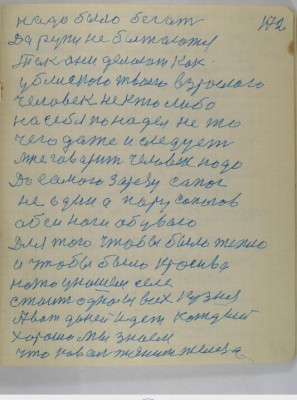 надо было бегат 172
Да руки не болталалис
Так они делают как
у близкого твоего взрослого
человек некто либо
на себя понадея не то
чего даже и следует
мне говорит человек надо
До самого Зарезу сапог
не один а пару сопогов
обои ноги обуваю
Для того чтобы было тепло
и чтобы было красива
на то у нашем селе
стоит одна
Кузня
идет каждый
хорошо мы знаем
что коваль
железа